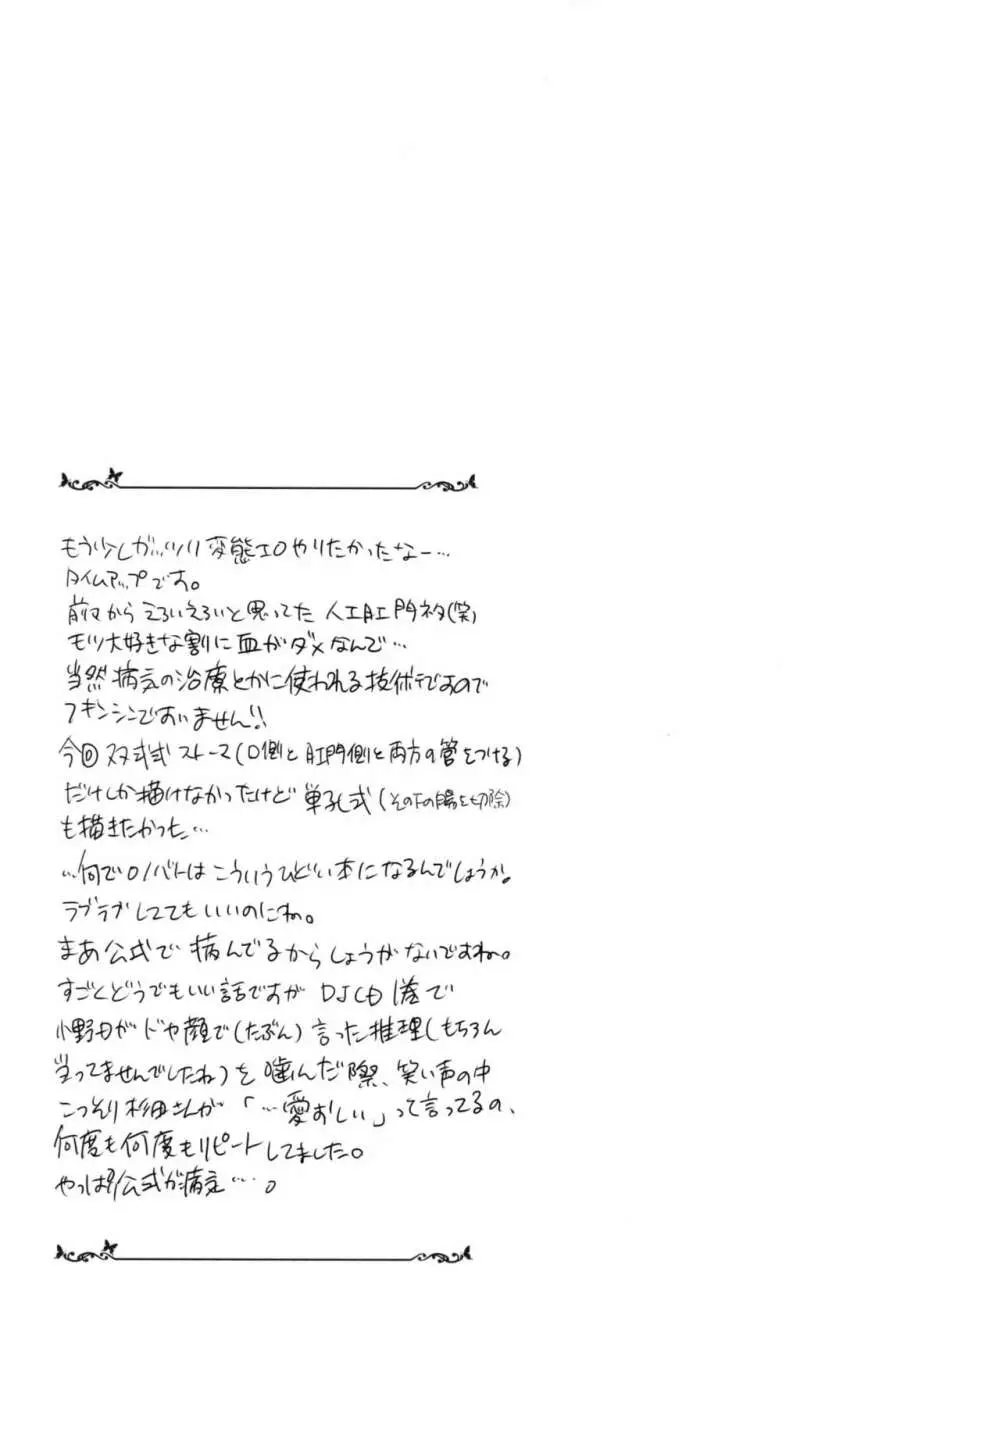 もう少しガッツリ変態エロやりたかったなー…
タイムアップです。
前々からえろいえろいと思ってた人工肛門ネタ(笑)
モツ大好きな割に血がダメなんで…
当然病気の治療とかに使われる技術ですので
フキンシンですいません!!
今回 ストーマ(口側と肛門側と両方の管をつける)
だけしか描けなかったけど単孔式(その下の腸を切除)
も描きたかった…
…何でロノバトはこういうひどい本になるんでしょうか。
ラブラブしててもいいのにね。
まあ公式で病んでるからしょうがないですね。
すごくどうでもいい話ですが DJCD1巻で
小野Dがドヤ顔で(たぶん)言った推理(もちろん
当ってませんでしたね)を噛んだ際、笑い声の中
こっそり杉田さんが「…愛おしい」って言ってるの、
何度も何度もリピートしてました。
やっぱり公式が病……。